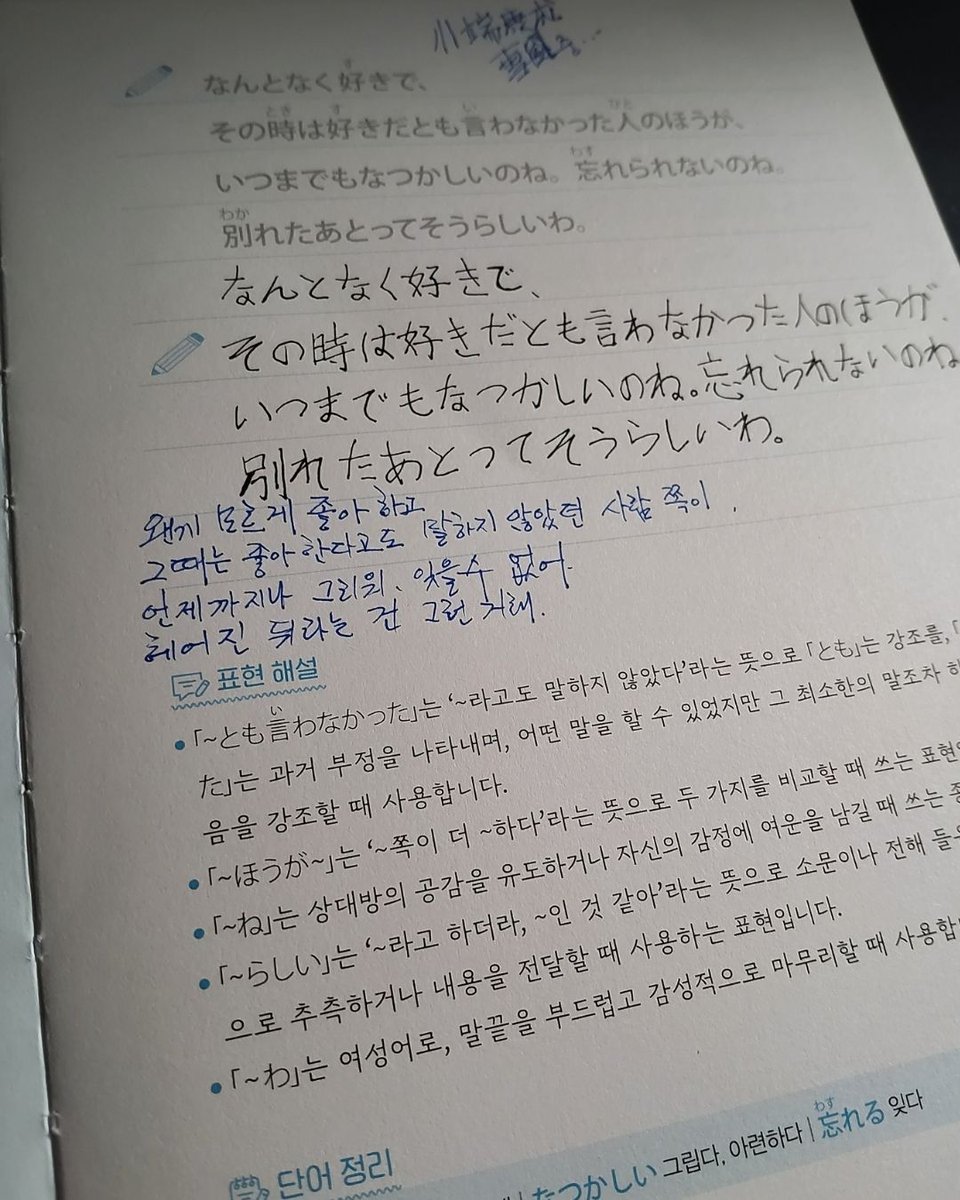 川端康成
なんとなく好きで、
その時は好きだとも言わなかった人のほうが、
いつまでもなつかしいのね。忘れられないのね。
別れたあとってそうらしいわ。
なんとなく好きで、
その時は好きだとも言わなかった人のほうが、
いつまでもなつかしいのね。忘れられないのね
別れたあとってそうらしいわ。
왠지 모르게 좋아하고
그때는 좋아한다고도 말하지 않았던 사람 쪽이.
언제까지나 그리워. 잊을수 없어.
헤어진 뒤라는 건 그런 거래.
표현 해설
•「~とも言わなかった」는 ‘~라고도 말하지 않았다’라는 뜻으로 「とも」는 강조를, 「
た」는 과거 부정을 나타내며, 어떤 말을 할 수 있었지만 그 최소한의 말조차 하
음을 강조할 때 사용합니다.
•「~ほうが~」는 ‘~쪽이 더 ~하다’라는 뜻으로 두 가지를 비교할 때 쓰는 표현
•「~ね」는 상대방의 공감을 유도하거나 자신의 감정에 여운을 남길 때 쓰는 종
•「~らしい」는 ‘~라고 하더라, ~인 것 같아’라는 뜻으로 소문이나 전해 들
으로 추측하거나 내용을 전달할 때 사용하는 표현입니다.
•「~わ」는 여성어로, 말끝을 부드럽고 감성적으로 마무리할 때 사용합
단어 정리
なつかしい 그립다, 아련하다 | 忘れる 잊다